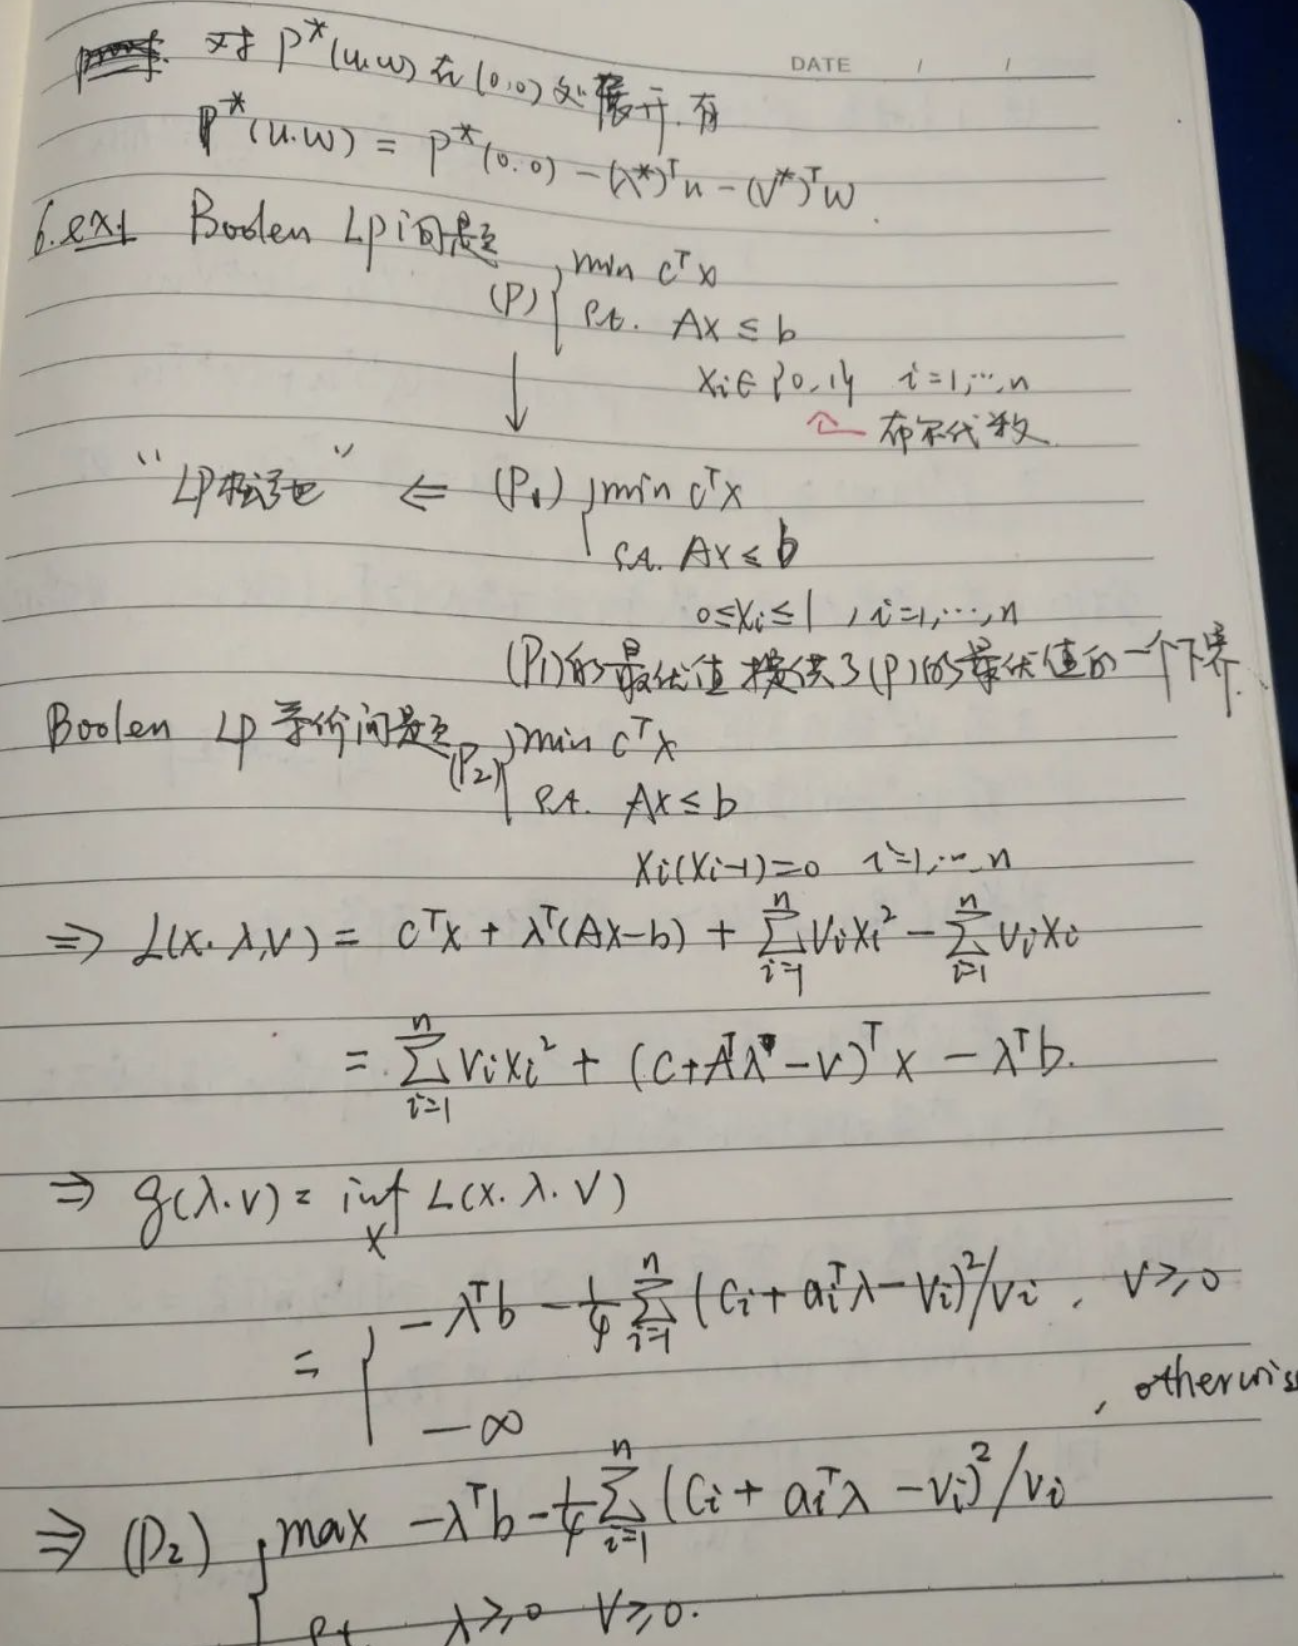 对 P*(u.w) 在 (0.0) 处展开.有
DATE / /
P*(u.w) = P*(0.0) - (λ*)ᵀu - (V*)ᵀw.
6.ex1 Boolen LP问题
(P) { min cᵀx
s.t. Ax ≤ b
xi∈{0,1} i=1,…,n
布尔代数
"LP松弛" ⇐ (P1) { min cᵀx
s.t. Ax ≤ b
0≤xi≤1, i=1,…,n
(P1)的最优值提供了(P)的最优值的一个下界.
Boolen LP 等价问题 (P2) { min cᵀx
s.t. Ax ≤ b
xi(xi-1)=0 i=1,…,n
⇒ L(x.λ,v) = cᵀx + λᵀ(Ax-b) + Σⁿᵢ₌₁ vixi² - Σⁿᵢ₌₁ vixi
= Σⁿᵢ₌₁ vixi² + (c+Aᵀλ-v)ᵀx - λᵀb.
⇒ g(λ.v) = inf L(x.λ.v)
x
= { -λᵀb - 1/4 Σⁿᵢ₌₁ (ci + aiᵀλ - vi)²/vi , v≥0
-∞ , otherwis
⇒ (D2) { max -λᵀb - 1/4 Σⁿᵢ₌₁ (ci + aiᵀλ - vi)²/vi
s.t. λ≥0 v≥0.